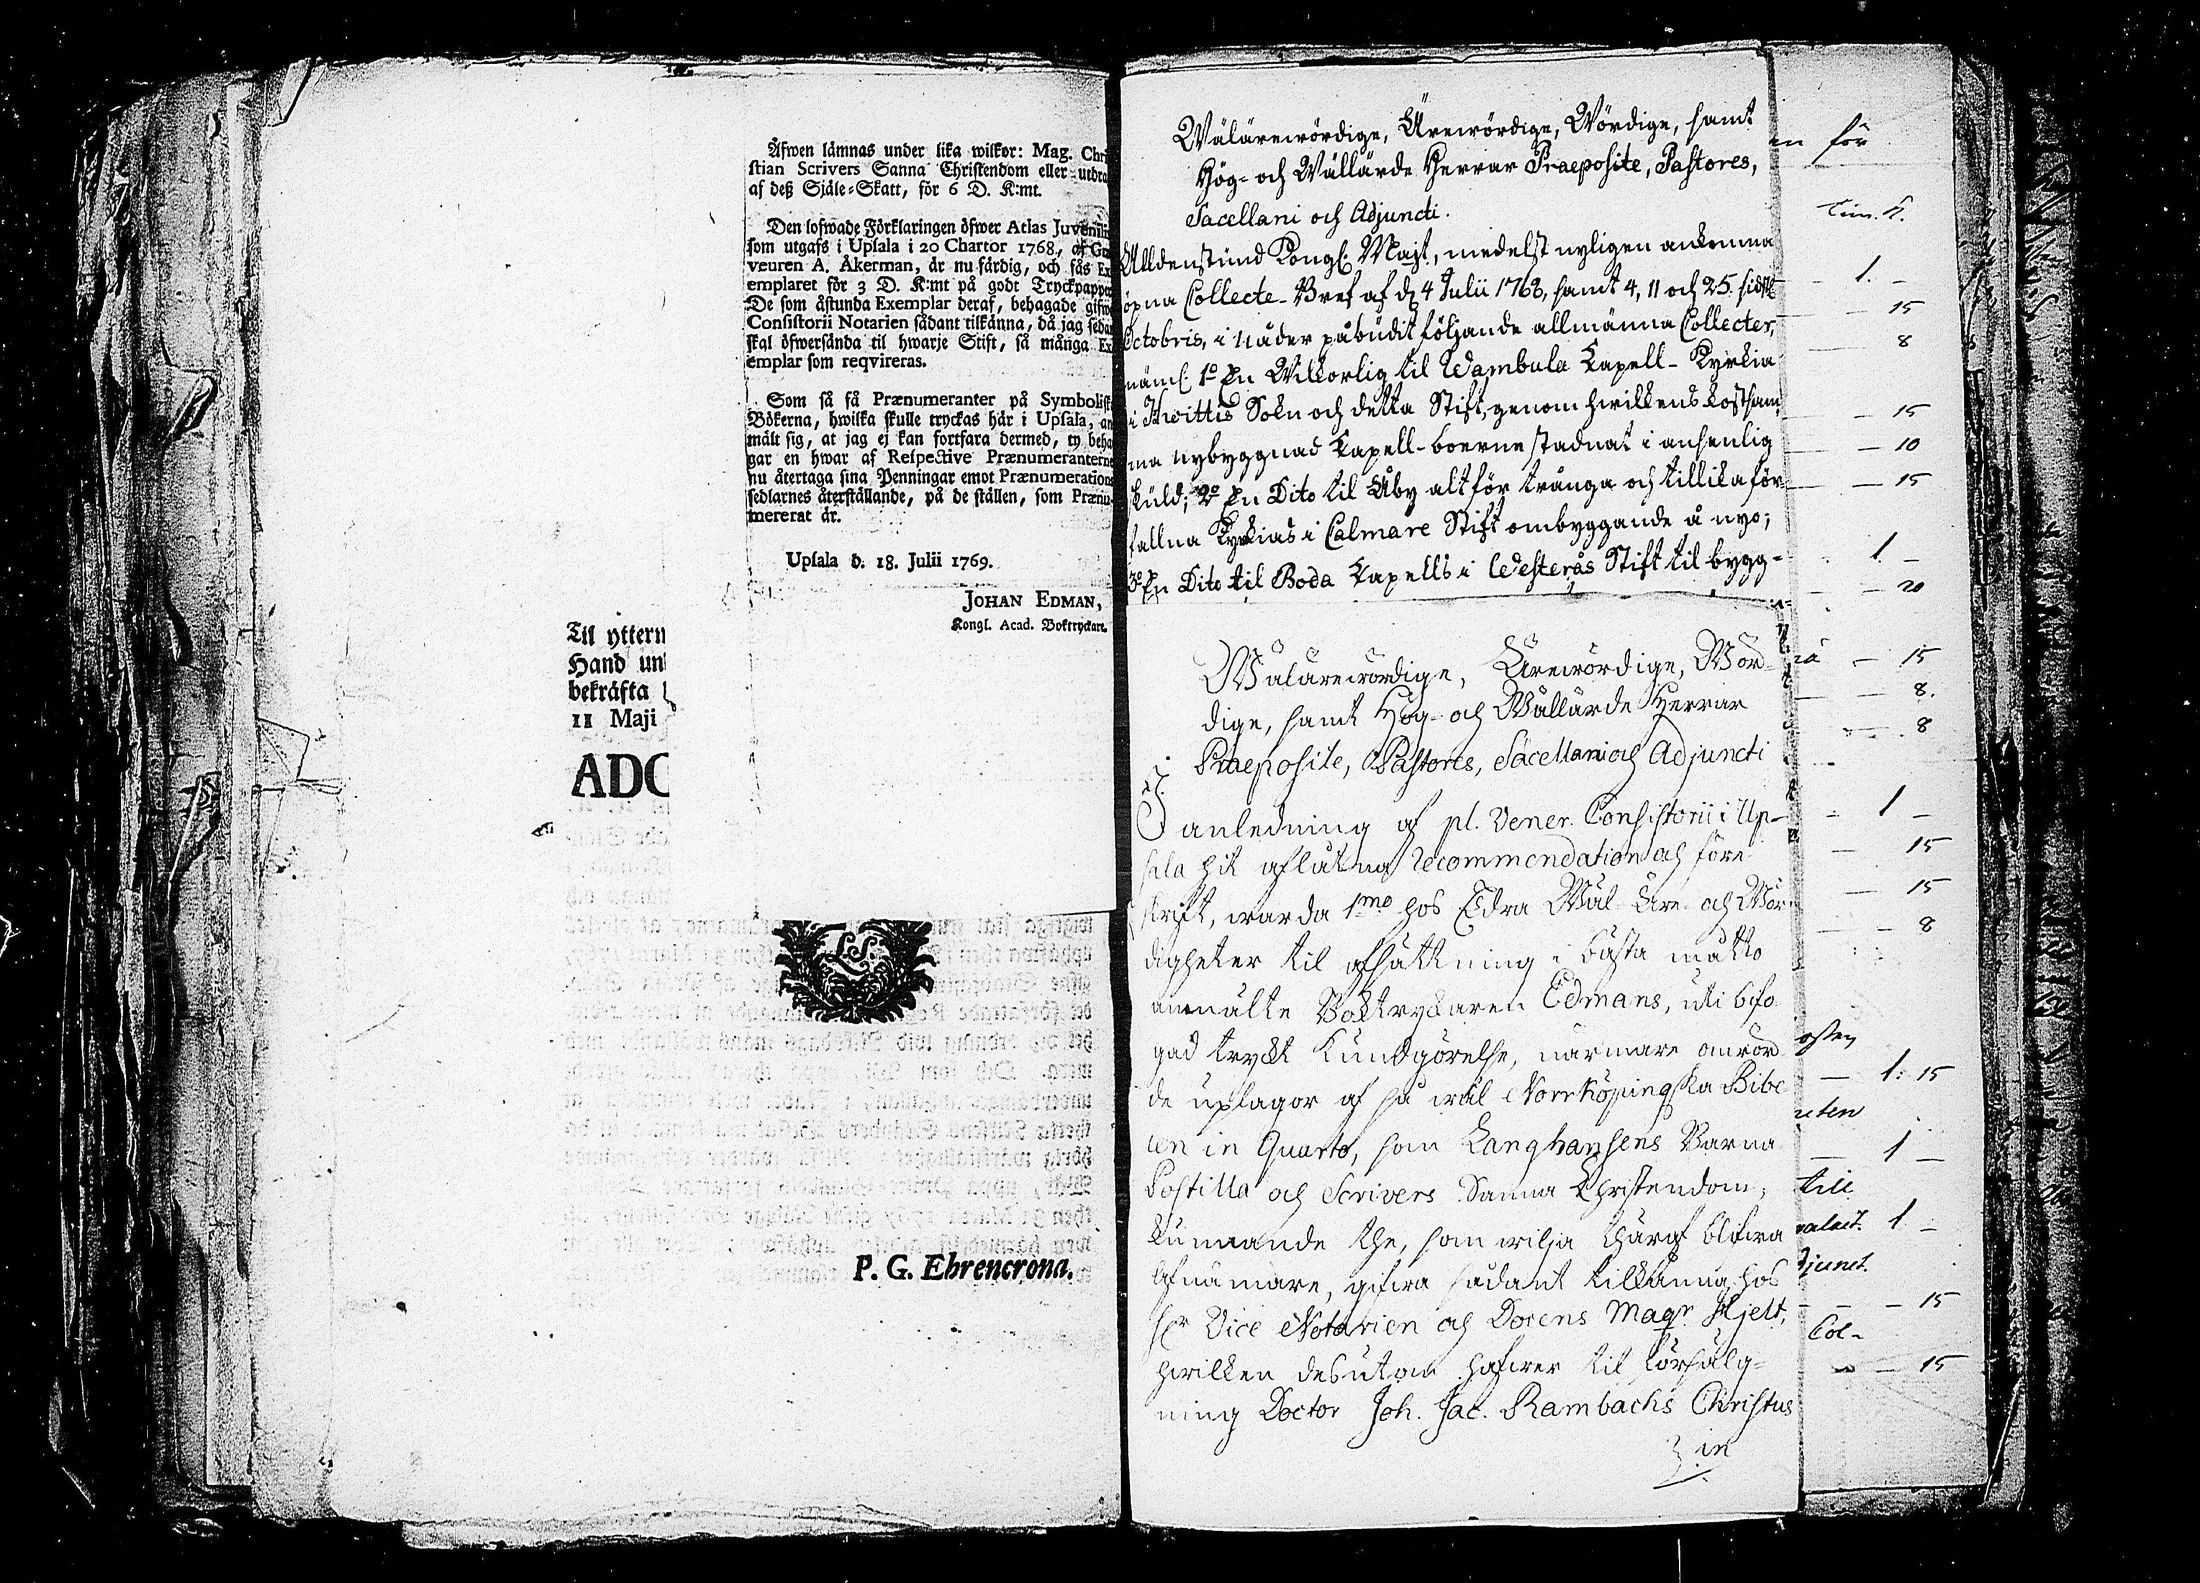 Äfwen lämnas under lika wilkor: Mag. Chri
stian Scrivers Sanna Christendom eller utdra
af deß Själe-Skatt, för 6 D. K:mt.
Den lofwade Förklaringen öfwer Atlas Juvenilis
som utgafs i Upsala i 20 Chartor 1768, af Gra
veuren A. Åkerman, är nu färdig, och fås Ex
emplaret för 3 D. K:mt på godt Tryckpapper
De som åstunda Exemplar deraf, behagade gifwa
Consistorii Notarien sådant tilkänna, då jag sedan
skal öfwersända til hwarje Stift, så många Ex
emplar som reqvireras.
Som så få Prænumeranter på Symbolisk
Böckerna, hwilka skulle tryckas här i Upsala, an
mält sig, at jag ej kan fortfara dermed, ty beha
gar en hwar af Respective Prænumeranterne
nu återtaga sina Penningar emot Prænumerations
sedlarnes återställande, på de ställen, som Prænu-
mererat är.
Upsala d. 18. Julii 1769.
JOHAN EDMAN,
Kongl. Acad. Boktryckare.
Til yttern
Hand un
bekräfta
11 Maji
ADO
L.S.
P. G. Ehrencrona.
Wälärewördige, Ärewördige, Wördige, samt
Hög- och Wällärde Herrar Præposite, Pastores,
Sacellani och Adjuncti.
Alldenstund Kongl. Majt, medelst nyligen ankomna
öpna Collecte-Bref af d. 4 Julii 1768, samt 4, 11 och 25 sidstl.
Octobris, i Nåder påbudit följande allmänna Collecter,
näml. 1o En Wilkorlig til Wambula Capell-Kyrkia
i Hwittis Sokn och detta Stift, genom hwilkens kostsam-
ma nybyggnad Capell-boerne stadnat i ansenlig
skuld; 2o En Dito til Åby altför trånga och tillika för-
fallna Kyrkias i Calmare Stift ombyggande å nyo;
3o En Dito til Boda Capells i Westerås Stift til bygg-
Wälärewördige, Ärewördige, Wör-
dige, samt Hög- och Wällärde Herrar
Præposite, Pastores, Sacellani och Adjuncti
I anledning af pl. Vener. Consistorii i Up-
sala hit aflåtna recommendation och före-
skrift, warda 1mo hos Edra Wäl- Äre- och Wör-
digheter til afsättning i bästa måtto
anmälte Boktryckaren Edmans, uti bifo-
gad tryckt Kundgörelse, närmare omrör-
de uplagor af så wäl Norrköpingska Bibe-
len in Quarto, som Langhansens Barna
Postilla och Scrivers Sanna Christendom;
kunnande the, som wilja theraf blifwa
afnämare, gifwa sådant tilkänna hos
Hr Vice Notarien och Docens Magr Hjelt,
hwilken desutom hafwer til försälg-
ning Doctor Joh. Jac. Rambachs Christus
in
en för
1. –
– 15
8
– 15
– 10
– 15
1 –
– 20
– 15
– 8.
– 8
– 1 –
– 15
– 15
– 8
osten
– 1: 15
– 1 –
till
1 –
djunct.
– – 15
Col-
– 15